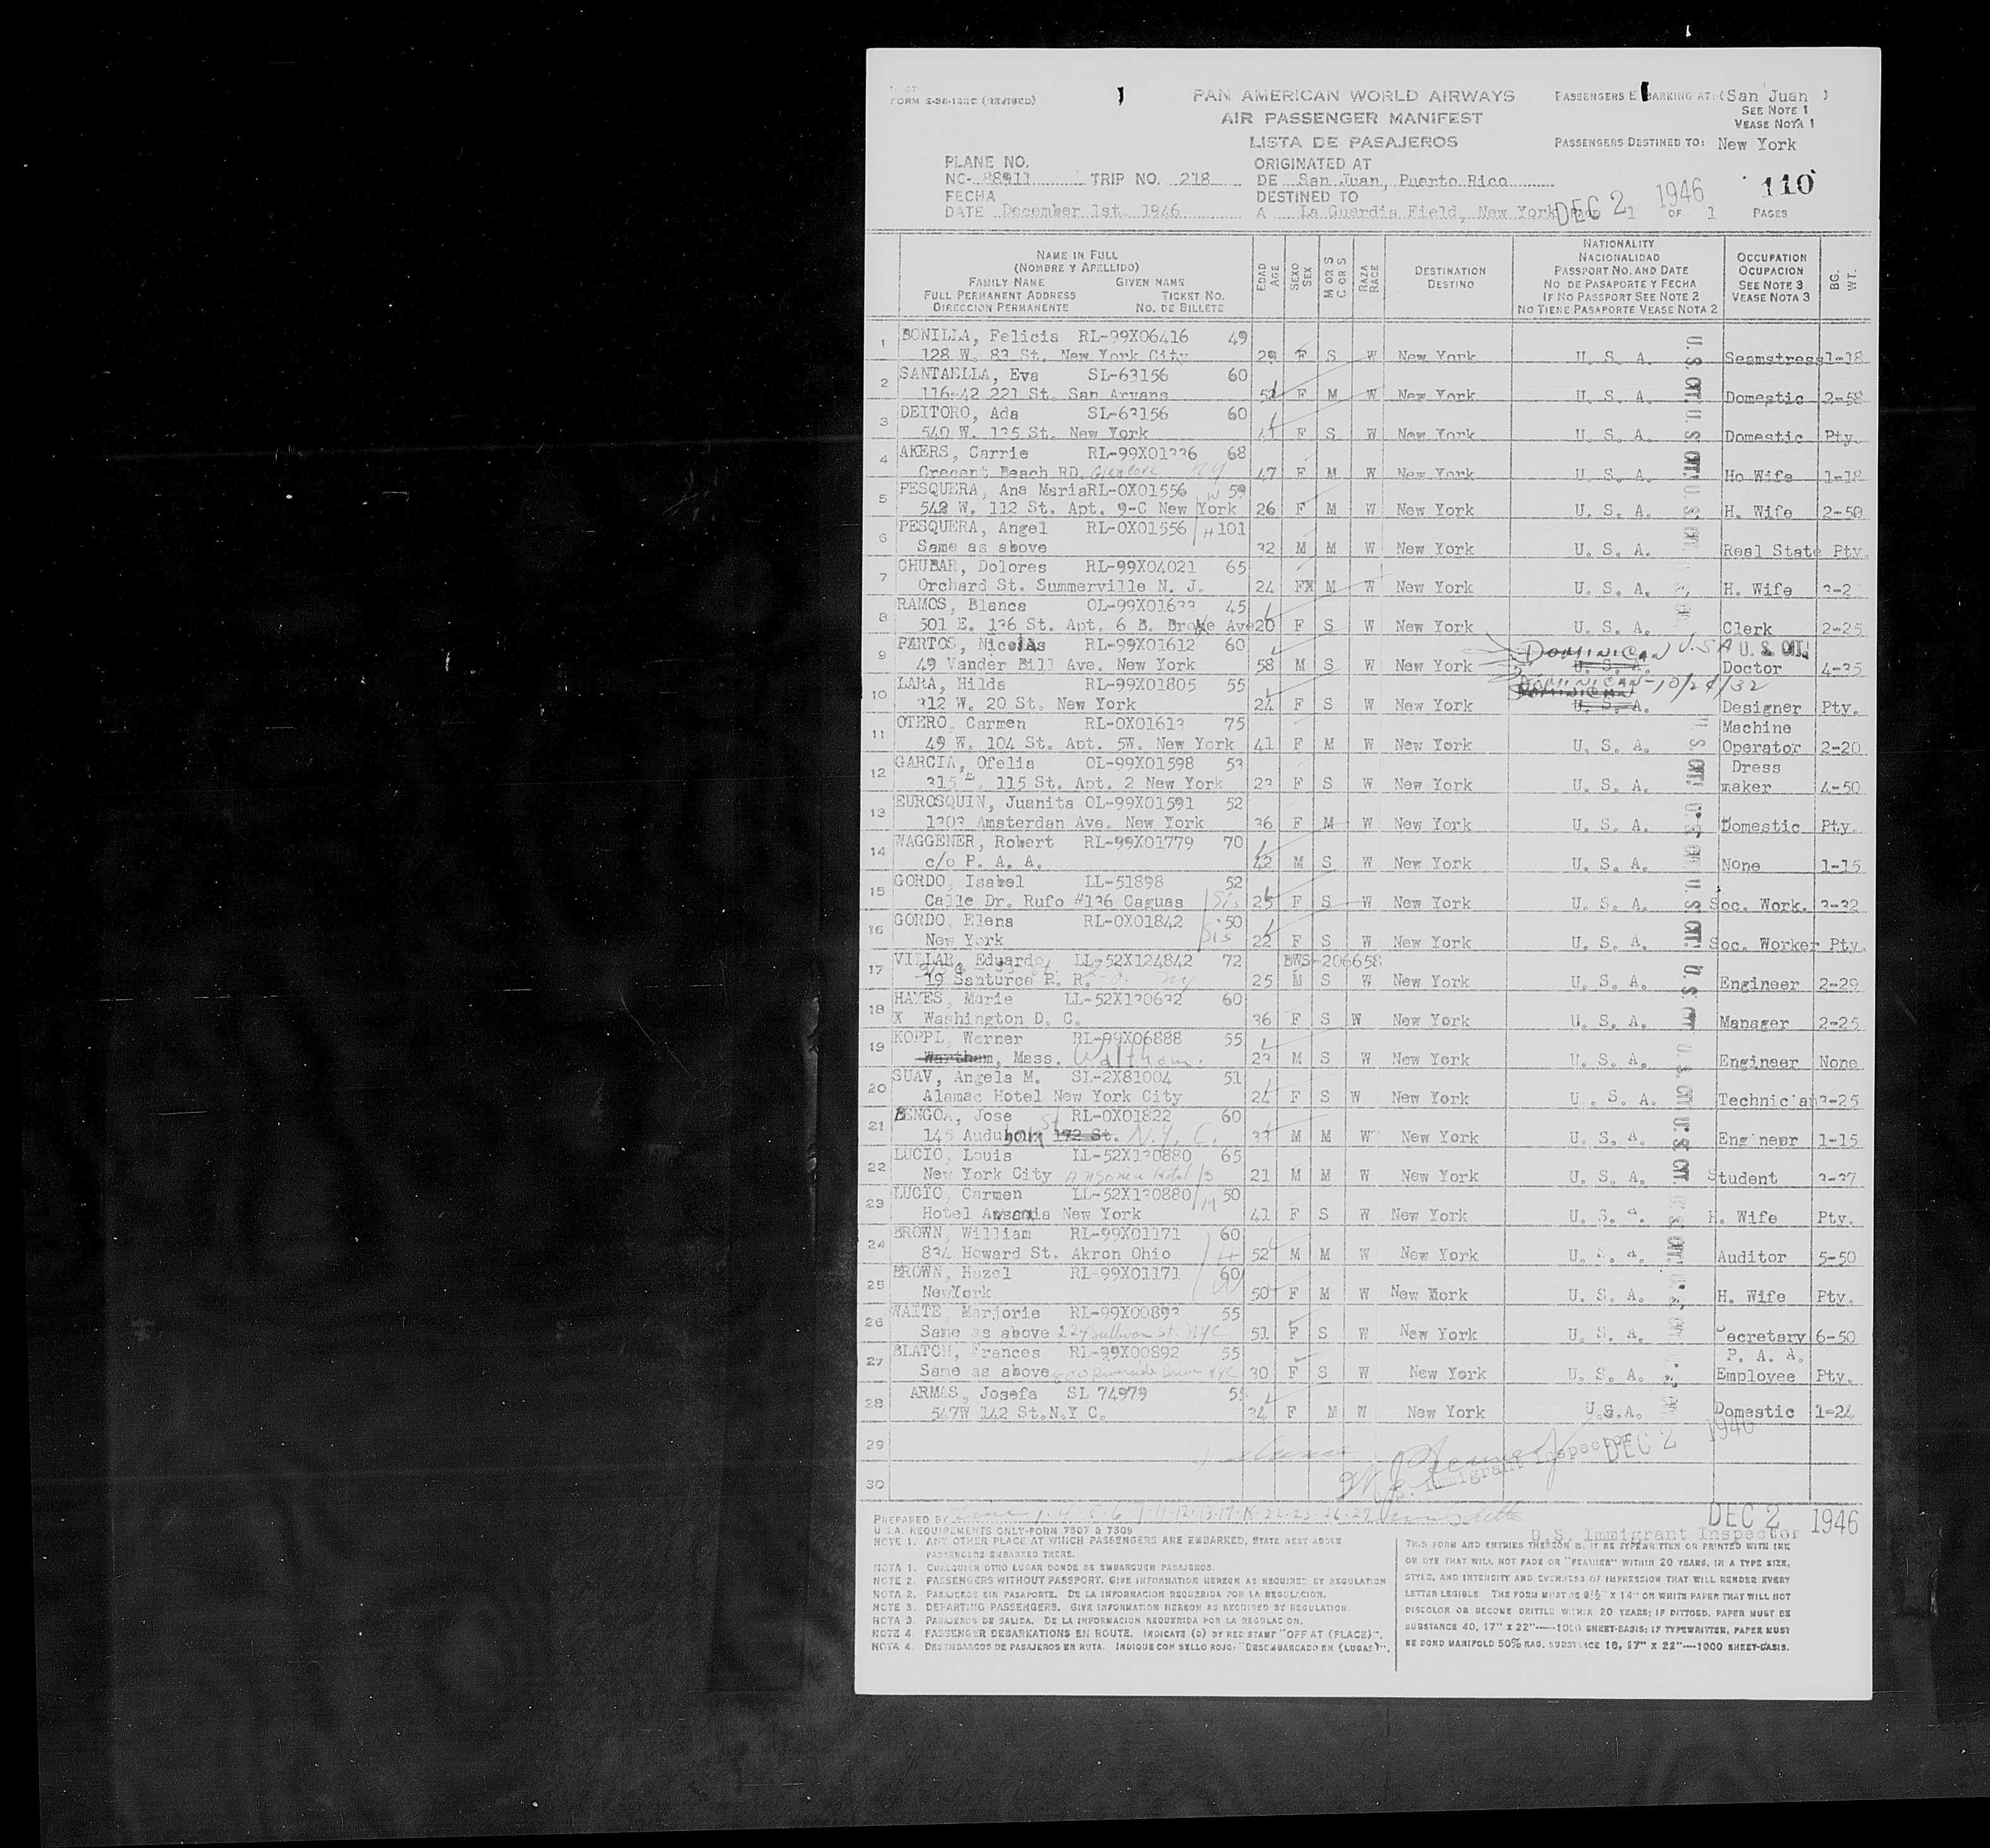 FORM X-38-122C (REVISED)
PAN AMERICAN WORLD AIRWAYS
AIR PASSENGER MANIFEST
LISTA DE PASAJEROS
PASSENGERS EMBARKING AT: (San Juan )
SEE NOTE 1
VEASE NOTA 1
PASSENGERS DESTINED TO: New York
PLANE NO.
NC- 88911 TRIP NO. 218
ORIGINATED AT
DE San Juan, Puerto Rico
FECHA
DATE December 1st. 1946
DESTINED TO
A La Guardia Field, New York
DEC 2 1946
110
1 OF 1 PAGES
NAME IN FULL
(NOMBRE Y APELLIDO)
FAMILY NAME GIVEN NAME
FULL PERMANENT ADDRESS TICKET NO.
DIRECCION PERMANENTE NO. DE BILLETE
EDAD AGE
SEXO SEX
M OR S C OR S
RAZA RACE
DESTINATION DESTINO
NATIONALITY
NACIONALIDAD
PASSPORT NO. AND DATE
NO. DE PASAPORTE Y FECHA
IF NO PASSPORT SEE NOTE 2
NO TIENE PASAPORTE VEASE NOTA 2
OCCUPATION
OCUPACION
SEE NOTE 3
VEASE NOTA 3
BG. WT.
1 BONILLA, Felicia RL-99X06416 49
128 W. 83 St. New York City 29 F S W New York U. S. A. Seamstress 1-18
2 SANTAELLA, Eva SL-63156 60
116-42 221 St. San Aryans 52 F M W New York U. S. A. Domestic 2-58
3 DEITORO, Ada SL-63156 60
540 W. 135 St. New York 41 F S W New York U. S. A. Domestic Pty.
4 AKERS, Carrie RL-99X01336 68
Crecent Beach RD. Glencove NY 47 F M W New York U. S. A. Ho Wife 1-18
5 PESQUERA, Ana Maria RL-0X01556 W 59
542 W. 112 St. Apt. 9-C New York 26 F M W New York U. S. A. H. Wife 2-50
6 PESQUERA, Angel RL-0X01556 H 101
Same as above 32 M M W New York U. S. A. Real State Pty.
7 CHUBAR, Dolores RL-99X04021 65
Orchard St. Summerville N. J. 24 FX M W New York U. S. A. H. Wife
8 RAMOS, Blanca OL-99X01633 45
501 E. 136 St. Apt. 6 B. Broke Ave 20 F S W New York U. S. A. Clerk 2-25
9 PARTOS, Nicolas RL-99X01612 60
DOMINICAN U.S.A U. S. CIT.
49 Vander Bill Ave. New York 58 M S W New York U. S. A. Doctor 4-35
10 LARA, Hilda RL-99X01805 55
DOMINICAN-10/24/32
312 W. 20 St. New York 24 F S W New York U. S. A. Designer Pty.
11 OTERO, Carmen RL-0X01613 75 Machine
49 W. 104 St. Apt. 5W. New York 41 F M W New York U. S. A. Operator 2-20
12 GARCIA, Ofelia OL-99X01598 53 Dress
315 E. 115 St. Apt. 2 New York 23 F S W New York U. S. A. maker 4-50
13 EUROSQUIN, Juanita OL-99X01591 52
1303 Amsterdan Ave. New York 36 F M W New York U. S. A. Domestic Pty.
14 WAGGENER, Robert RL-99X01779 70
c/o P. A. A. 42 M S W New York U. S. A. None 1-15
15 GORDO, Isabel LL-51898 52
Calle Dr. Rufo #136 Caguas Sis 25 F S W New York U. S. A. Soc. Work. 3-32
16 GORDO, Elena RL-0X01842 50
New York Sis 22 F S W New York U. S. A. Soc. Worker Pty.
17 VILLAR, Eduardo LL-52X124842 72 BWS-206658
19 Santurce P. R. NY 25 M S W New York U. S. A. Engineer 2-29
18 HAYES, Marie LL-52X130632 60
X Washington D. C. 36 F S W New York U. S. A. Manager 2-25
19 KOPPL, Werner RL-99X06888 55
Wartham, Mass. Waltham. 23 M S W New York U. S. A. Engineer None
20 SUAV, Angela M. SL-2X81004 51
Alamac Hotel New York City 24 F S W New York U. S. A. Technician 3-25
21 BENGOA, Jose RL-0X01822 60
145 Audubon 172 St. N.Y.C. 33 M M W New York U. S. A. Engineer 1-15
22 LUCIO, Louis LL-52X130880 65
New York City Ansonia Hotel S 21 M M W New York U. S. A. Student 3-37
23 LUCIO, Carmen LL-52X130880 50
Hotel Ansonia New York M 41 F S W New York U. S. A. H. Wife Pty.
24 BROWN, William RL-99X01171 60
834 Howard St. Akron Ohio H 52 M M W New York U. S. A. Auditor 5-50
25 BROWN, Hazel RL-99X01171 60
NewYork W 50 F M W New Mork U. S. A. H. Wife Pty.
26 WAITE, Marjorie RL-99X00893 55
Same as above 227 Sullivan St. NYC 51 F S W New York U. S. A. Secretary 6-50
27 BLATCH, Frances RL-99X00892 55 P. A. A.
Same as above 600 Riverside Drive NYC 30 F S W New York U. S. A. Employee Pty.
28 ARMAS, Josefa SL 74979 55
547W 142 St.N.Y C. 34 F M W New York U.S.A. Domestic 1-24
29
30
U. S. Immigrant Inspector DEC 2 1946
PREPARED BY
DEC 2 1946
U.S. Immigrant Inspector
U.S.A. REQUIREMENTS ONLY-FORM 7507 & 7509
NOTE 1. ANY OTHER PLACE AT WHICH PASSENGERS ARE EMBARKED, STATE NEXT ABOVE
PASSENGERS EMBARKED THERE.
NOTA 1. CUALQUIER OTRO LUGAR DONDE SE EMBARQUEN PASAJEROS.
NOTE 2. PASSENGERS WITHOUT PASSPORT. GIVE INFORMATION HEREON AS REQUIRED BY REGULATION
NOTA 2. PASAJEROS SIN PASAPORTE. DE LA INFORMACION REQUERIDA POR LA REGULACION.
NOTE 3. DEPARTING PASSENGERS. GIVE INFORMATION HEREON AS REQUIRED BY REGULATION.
NOTA 3. PASAJEROS DE SALIDA. DE LA INFORMACION REQUERIDA POR LA REGULACION.
NOTE 4. PASSENGER DEBARKATIONS EN ROUTE. INDICATE (D) BY RED STAMP "OFF AT (PLACE)".
NOTA 4. DESEMBARCOS DE PASAJEROS EN RUTA. INDIQUE CON SELLO ROJO: "DESEMBARCADO EN (LUGAR)".
THIS FORM AND ENTRIES THEREON MUST BE TYPEWRITTEN OR PRINTED WITH INK
OR DYE THAT WILL NOT FADE OR "FEATHER" WITHIN 20 YEARS, IN A TYPE SIZE,
STYLE, AND INTENSITY AND EVENNESS OF IMPRESSION THAT WILL RENDER EVERY
LETTER LEGIBLE. THE FORM MUST BE 8½" X 14" ON WHITE PAPER THAT WILL NOT
DISCOLOR OR BECOME BRITTLE WITHIN 20 YEARS; IF DITTOED, PAPER MUST BE
SUBSTANCE 40, 17" X 22"—1000 SHEET-BASIS; IF TYPEWRITTEN, PAPER MUST
BE BOND MANIFOLD 50% RAG, SUBSTANCE 16, 17" X 22"—1000 SHEET-BASIS.